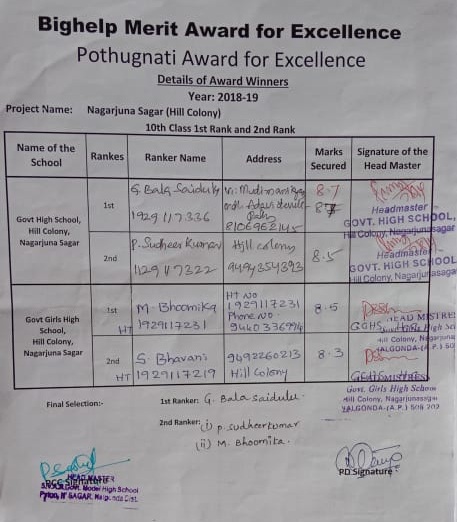 Bighelp Merit Award for Excellence
Pothugnati Award for Excellence
Details of Award Winners
Year: 2018-19
Project Name: Nagarjuna Sagar (Hill Colony)
10th Class 1st Rank and 2nd Rank
Name of the School Rankes Ranker Name Address Marks Secured Signature of the Head Master
Govt High School, Hill Colony, Nagarjuna Sagar
1st G. Bala Saidulu 8.7
1929117336 8106962145
Headmaster
GOVT. HIGH SCHOOL,
Hill Colony, Nagarjunasagar
2nd P. Sudheer Kumar Hill colony 8.5
1129117322 9494354393
Headmaster
GOVT. HIGH SCHOOL
Hill Colony, Nagarjunasagar
Govt Girls High School, Hill Colony, Nagarjuna Sagar
1st M. Bhoomika HT No 8.5
HT 1929117231 1929117231
Phone No.
9440336994
HEAD MISTRE
GGHS Girls High Sc
Hill Colony, Nagarju
NALGONDA-(A.P.) 50
2nd S Bhavani 9492260213 8.3
HT 1929117219 Hill Colony
Govt. Girls High School
Hill Colony, Nagarjunasagar
NALGONDA-(A.P.) 508 202
Final Selection:- 1st Ranker: G. Bala saidulu.
2nd Ranker: (i) p. sudheerkumar
(ii) M. Bhoomika.
HEAD MASTER
PCC Signature
Model High School
Pylon, N' SAGAR, Nalgonda Dist.
PD Signature